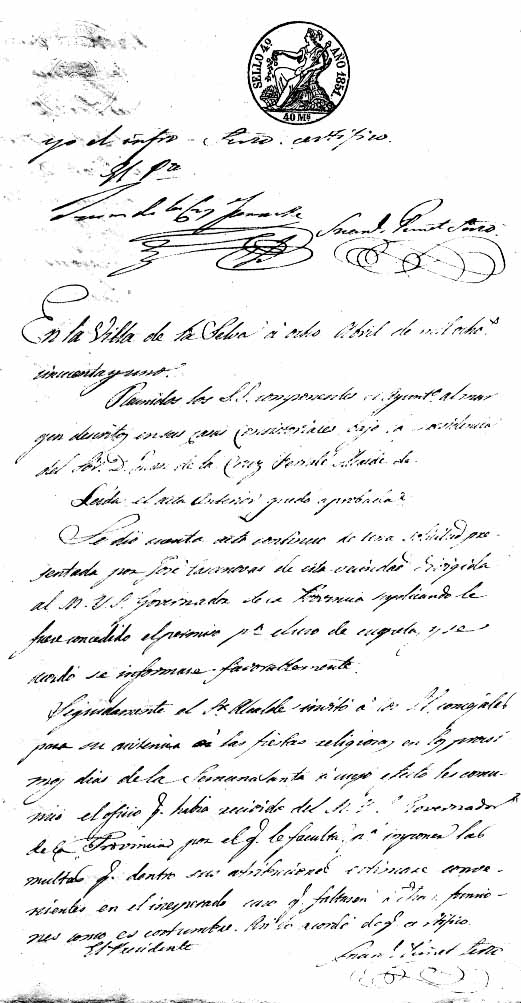 SELLO 4º AÑO 1851.
40 Ms
yo el infro Srio. certifico.
El Pte
Juan de la Cruz
En la Villa de la Selva á ocho Abril de mil ochos
cincuenta y uno.
Reunidos los S.S. componentes el Ayunto. al mar
gen descritos en sus casas Consistoriales bajo la presidencia
del Sor. D. Juan de la Cruz Alcalde de
Leida el acta anterior quedo aprobada
Se dió cuenta acto continuo de una solicitud pre-
sentada por José Casanovas de esta vecindad dirigida
al M. Y. S. Governador de la Provincia suplicando le
fuese concedido el permiso pa. el uso de escopeta, y se
acordó se informase favorablemente.
Seguidamente el Sr. Alcalde invitó á los SS. concejales
para su asistencia á las fiestas religiosas en los proxi
mos dias de la Semana Santa á cuyo efecto les comu
nicó el oficio q. habia recivido del M. Y. S. Governador
de la Provincia por el q. le faculta pa. imponer las
multas q. dentro sus atribuciones estimase conve-
nientes en el inesperado caso q. faltasen á dhas. funcio-
nes como es costumbre. Asi lo acordó de q. certifico.
El Presidente